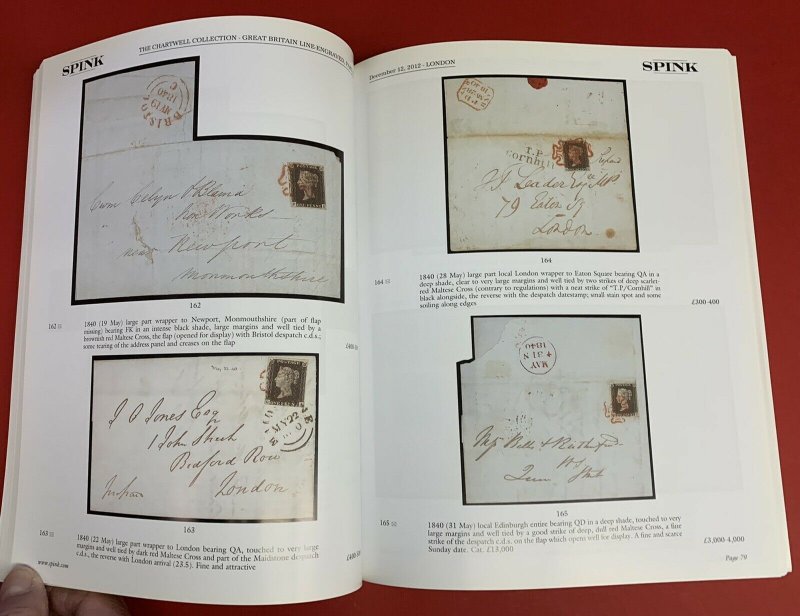 SPINK
THE CHARTWELL COLLECTION - GREAT BRITAIN LINE-ENGRAVED,
BRISTOL
MY 19
1840
Iron Works
near Newport
Monmouthshire
162
162
1840 (19 May) large part wrapper to Newport, Monmouthshire (part of flap
missing) bearing FK in an intense black shade, large margins and well tied by a
brownish red Maltese Cross, the flap (opened for display) with Bristol despatch c.d.s.;
some tearing of the address panel and creases on the flap
Jones Esq
1 John Street
Bedford Row
London
MY 22
163
163
1840 (22 May) large part wrapper to London bearing QA, touched to very large
margins and well tied by dark red Maltese Cross and part of the Maidstone despatch
c.d.s., the reverse with London arrival (23.5). Fine and attractive
www.spink.com
December 12, 2012 - LONDON
SPINK
T.P
Cornhill
Leader Esq
79 Eaton Sq
London
164
164
1840 (28 May) large part local London wrapper to Eaton Square bearing QA in a
deep shade, clear to very large margins and well tied by two strikes of deep scarlet-
red Maltese Cross (contrary to regulations) with a neat strike of "T.P./Cornhill" in
black alongside, the reverse with the despatch datestamp; small stain spot and some
soiling along edges
£300-400
MAY
31
1840
165
165
1840 (31 May) local Edinburgh entire bearing QD in a deep shade, touched to very
large margins and well tied by a good strike of deep, dull red Maltese Cross, a fine
strike of the despatch c.d.s. on the flap which opens well for display. A fine and scarce
Sunday date. Cat. £13,000
£3,000-4,000
Page 79